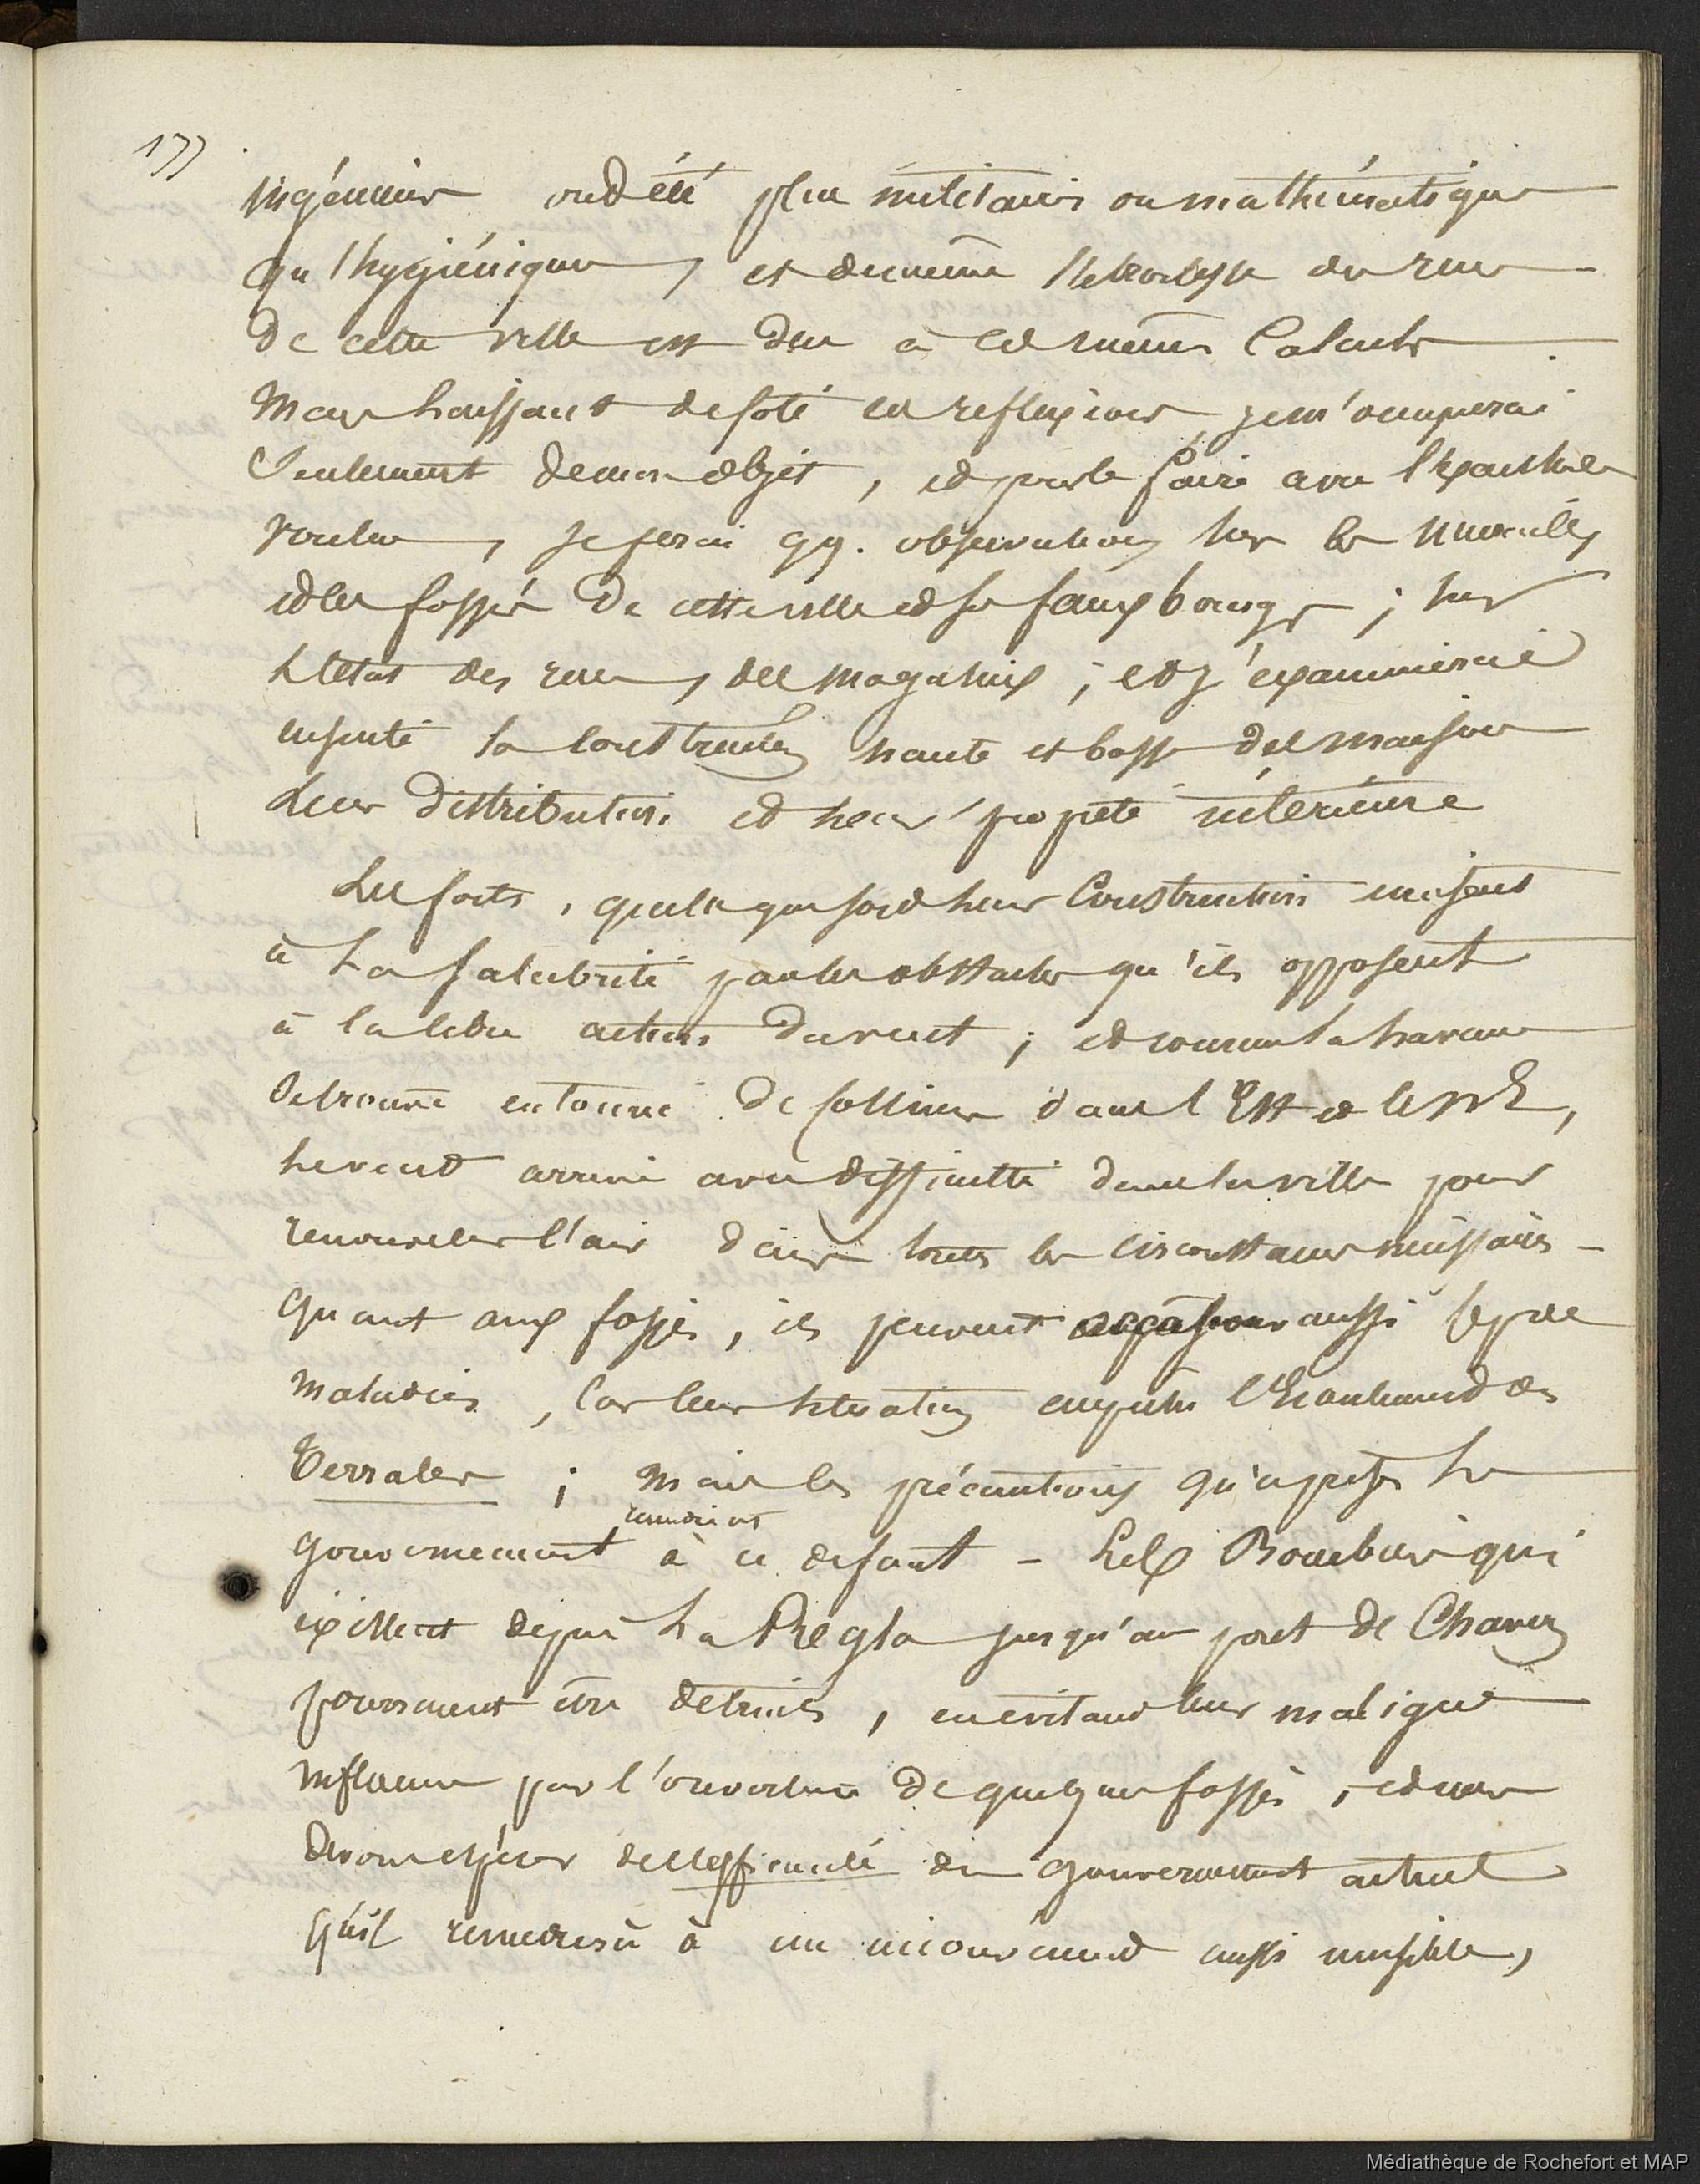 177
ingénieurs ont été plus militaires ou mathématiques
qu'hygiéniques, et de même l'étroitesse des rues
de cette ville est due à ces mêmes calculs
Mais laissant de coté ces reflexions, je m'occuperai
seulement de mon objet, et pour le faire avec l'exactitude
voulue, je ferai qq. observations sur les murailles
et les fossés de cette ville et ses fauxbourgs; sur
l'état des rues, des magasins; et j'examinerai
ensuite la construction haute et basse des maisons
leur distribution et leur propreté intérieure
Les forts, quelque que soit leur construction nuisent
à la salubrité par les obstacles qu'ils opposent
à la libre action du vent; et comme la havane
se trouve entourée de collines dans l'Est et le NE,
le vent arrive avec difficulté dans la ville pour
renouveler l'air dans toutes les circonstances nécessaires –
Quant aux fossés, ils peuvent occasioner aussi
maladies, car leur situation empêche l'écoulement des
Terrales; mais les précautions qu'a prises le
remédient
gouvernement à ce defaut – Les Bourbiers qui
existent depuis La Regla jusqu'au pont de Chavez
pourraient être détruits, en évitant leur maligne
influence par l'ouverture de quelques fossés, et nous
devons espérer de l'efficacité du gouvernement actuel
qu'il remediera à un inconvénient aussi nuisible,
Médiathèque de Rochefort et MAP